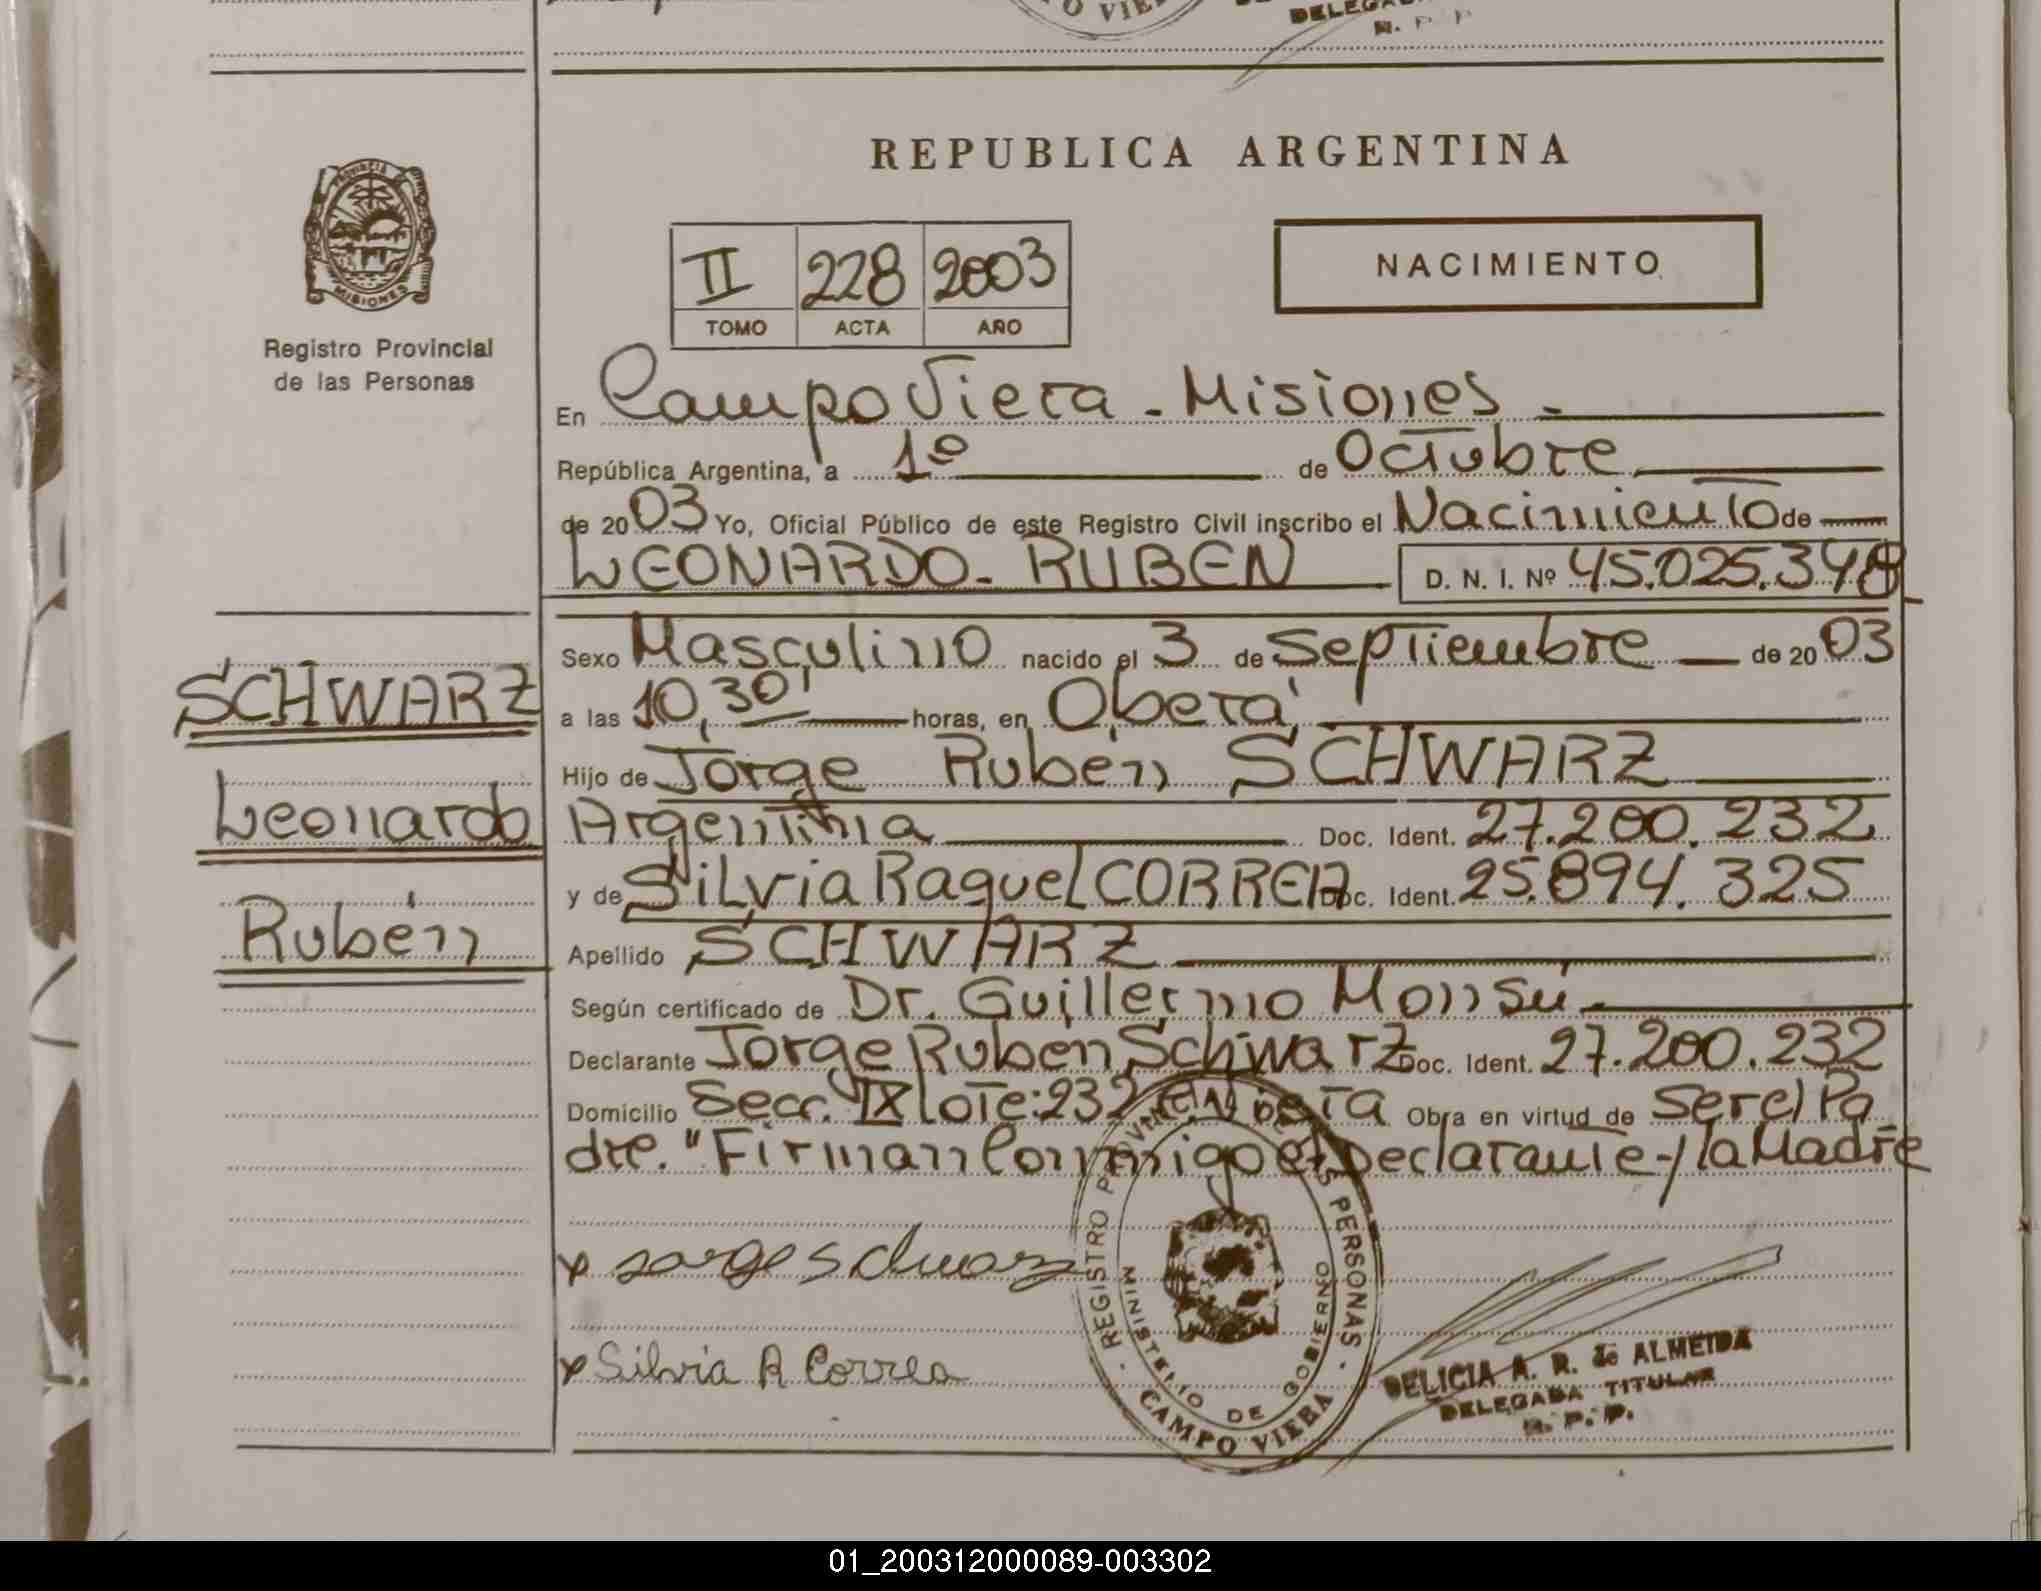 DELEGA
R. P. P
REPUBLICA ARGENTINA
PROVINCIA
MISIONES
Registro Provincial
de las Personas
II 228 2003
TOMO ACTA AÑO
NACIMIENTO
En Campo Viera - Misiones -
República Argentina, a 1º de Octubre
de 2003 Yo, Oficial Público de este Registro Civil inscribo el Nacimiento de
LEONARDO - RUBEN D. N. I. Nº 45.025.348
Sexo Masculino nacido el 3 de Septiembre de 2003
a las 10,30' horas, en Oberá
Hijo de Jorge Rubén SCHWARZ
Argentina Doc. Ident. 27.200.232
y de Silvia Raquel CORREA Doc. Ident. 25.894.325
Apellido SCHWARZ
Según certificado de Dr. Guillermo Monsú -
Declarante Jorge Ruben Schwarz Doc. Ident. 27.200.232
Domicilio Secc. IX Lote: 232 Obra en virtud de Ser el Pa
dre. "Firman Conmigo el Declarante - y la Madre
SCHWARZ
Leonardo
Rubén
x Jorge Schwarz
x Silvia R Correa
REGISTRO PROVINCIAL DE LAS PERSONAS
MINISTERIO DE GOBIERNO
CAMPO VIERA
DELICIA A. R. de ALMEIDA
DELEGADA TITULAR
R. P. P.
01_200312000089-003302